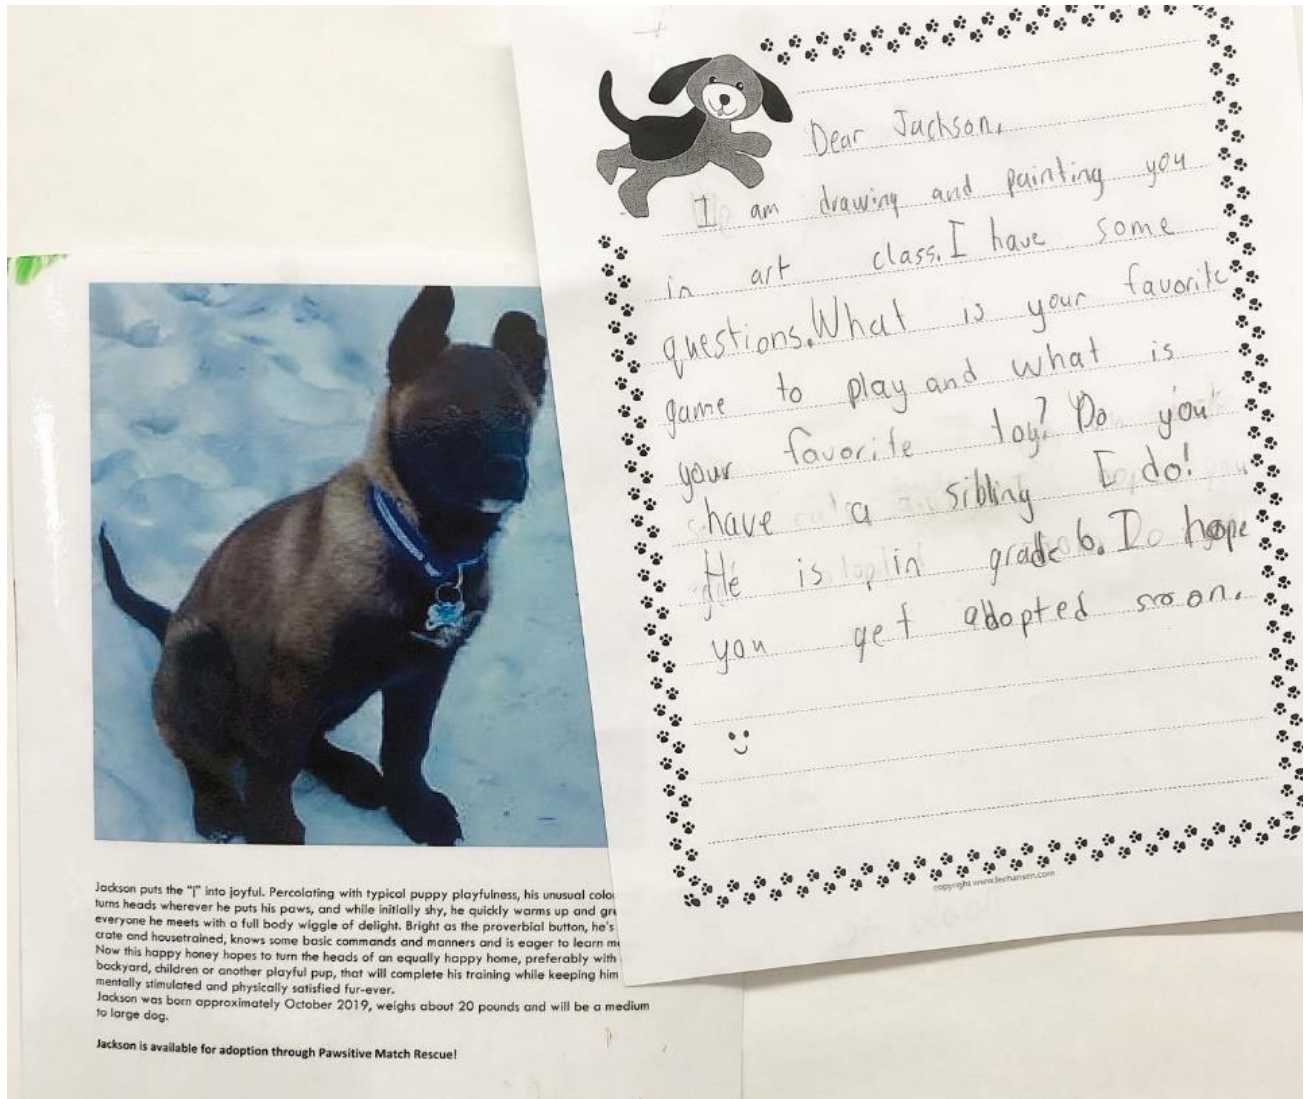 Dear Jackson,
I am drawing and painting you
in art class. I have some
questions. What is your favorite
game to play and what is
your favorite toy? Do you
have a sibling I do!
He is in grade 6. I hope
you get adopted soon.
copyright www.leehansen.com
Jackson puts the "j" into joyful. Percolating with typical puppy playfulness, his unusual
turns heads wherever he puts his paws, and while initially shy, he quickly warms up and
everyone he meets with a full body wiggle of delight. Bright as the proverbial button, he's
crate and housetrained, knows some basic commands and manners and is eager to learn
Now this happy honey hopes to turn the heads of an equally happy home, preferably with
backyard, children or another playful pup, that will complete his training while keeping him
mentally stimulated and physically satisfied fur-ever.
Jackson was born approximately October 2019, weighs about 20 pounds and will be a medium
to large dog.
Jackson is available for adoption through Pawsitive Match Rescue!